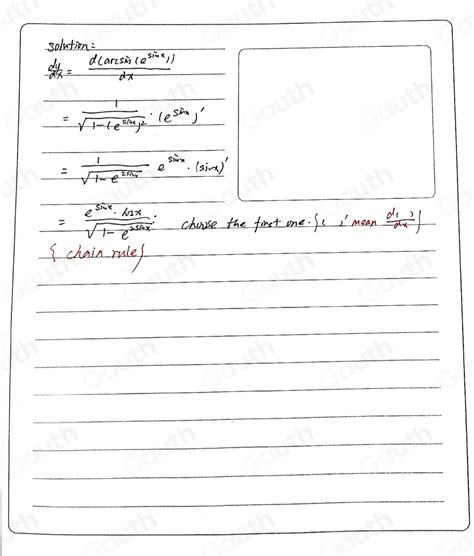 solution:
dy/dx = d(arcsin(e^sinx))/dx
= 1/√(1-(e^sinx)²) · (e^sinx)'
= 1/√(1-e^2sinx) e^sinx · (sinx)'
= e^sinx · cosx/√(1-e^2sinx) . choose the first one. { ( )' mean d( )/dx }
{ chain rule }